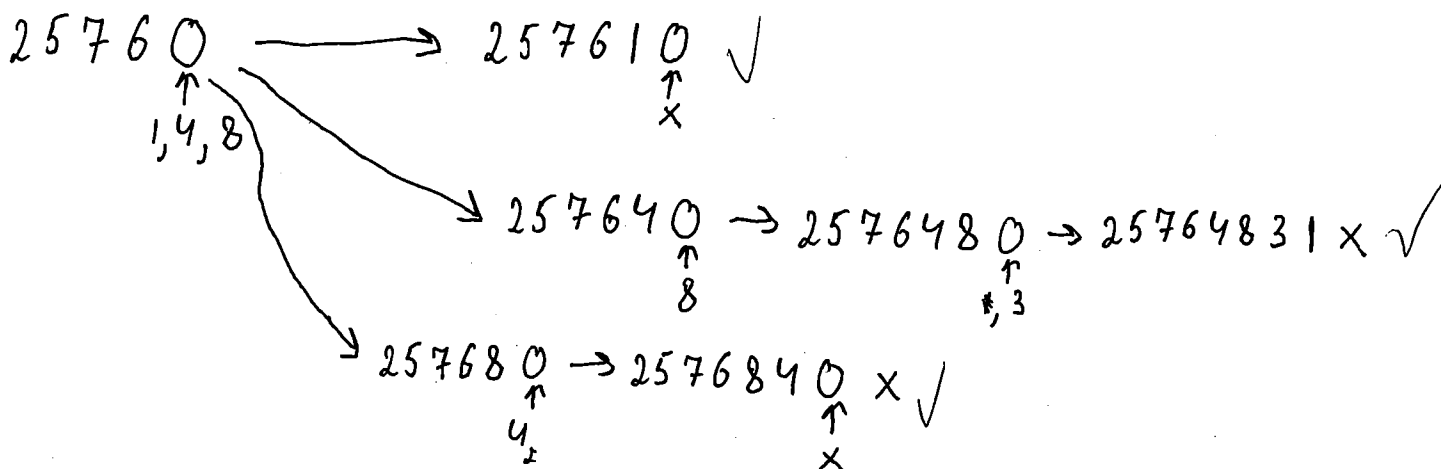 25760 → 257610 ✓
↑ ↑
1,4,8 x
257640 → 2576480 → 25764831 x ✓
↑ ↑
8 , 3
257680 → 2576840 x ✓
↑ ↑
4, x